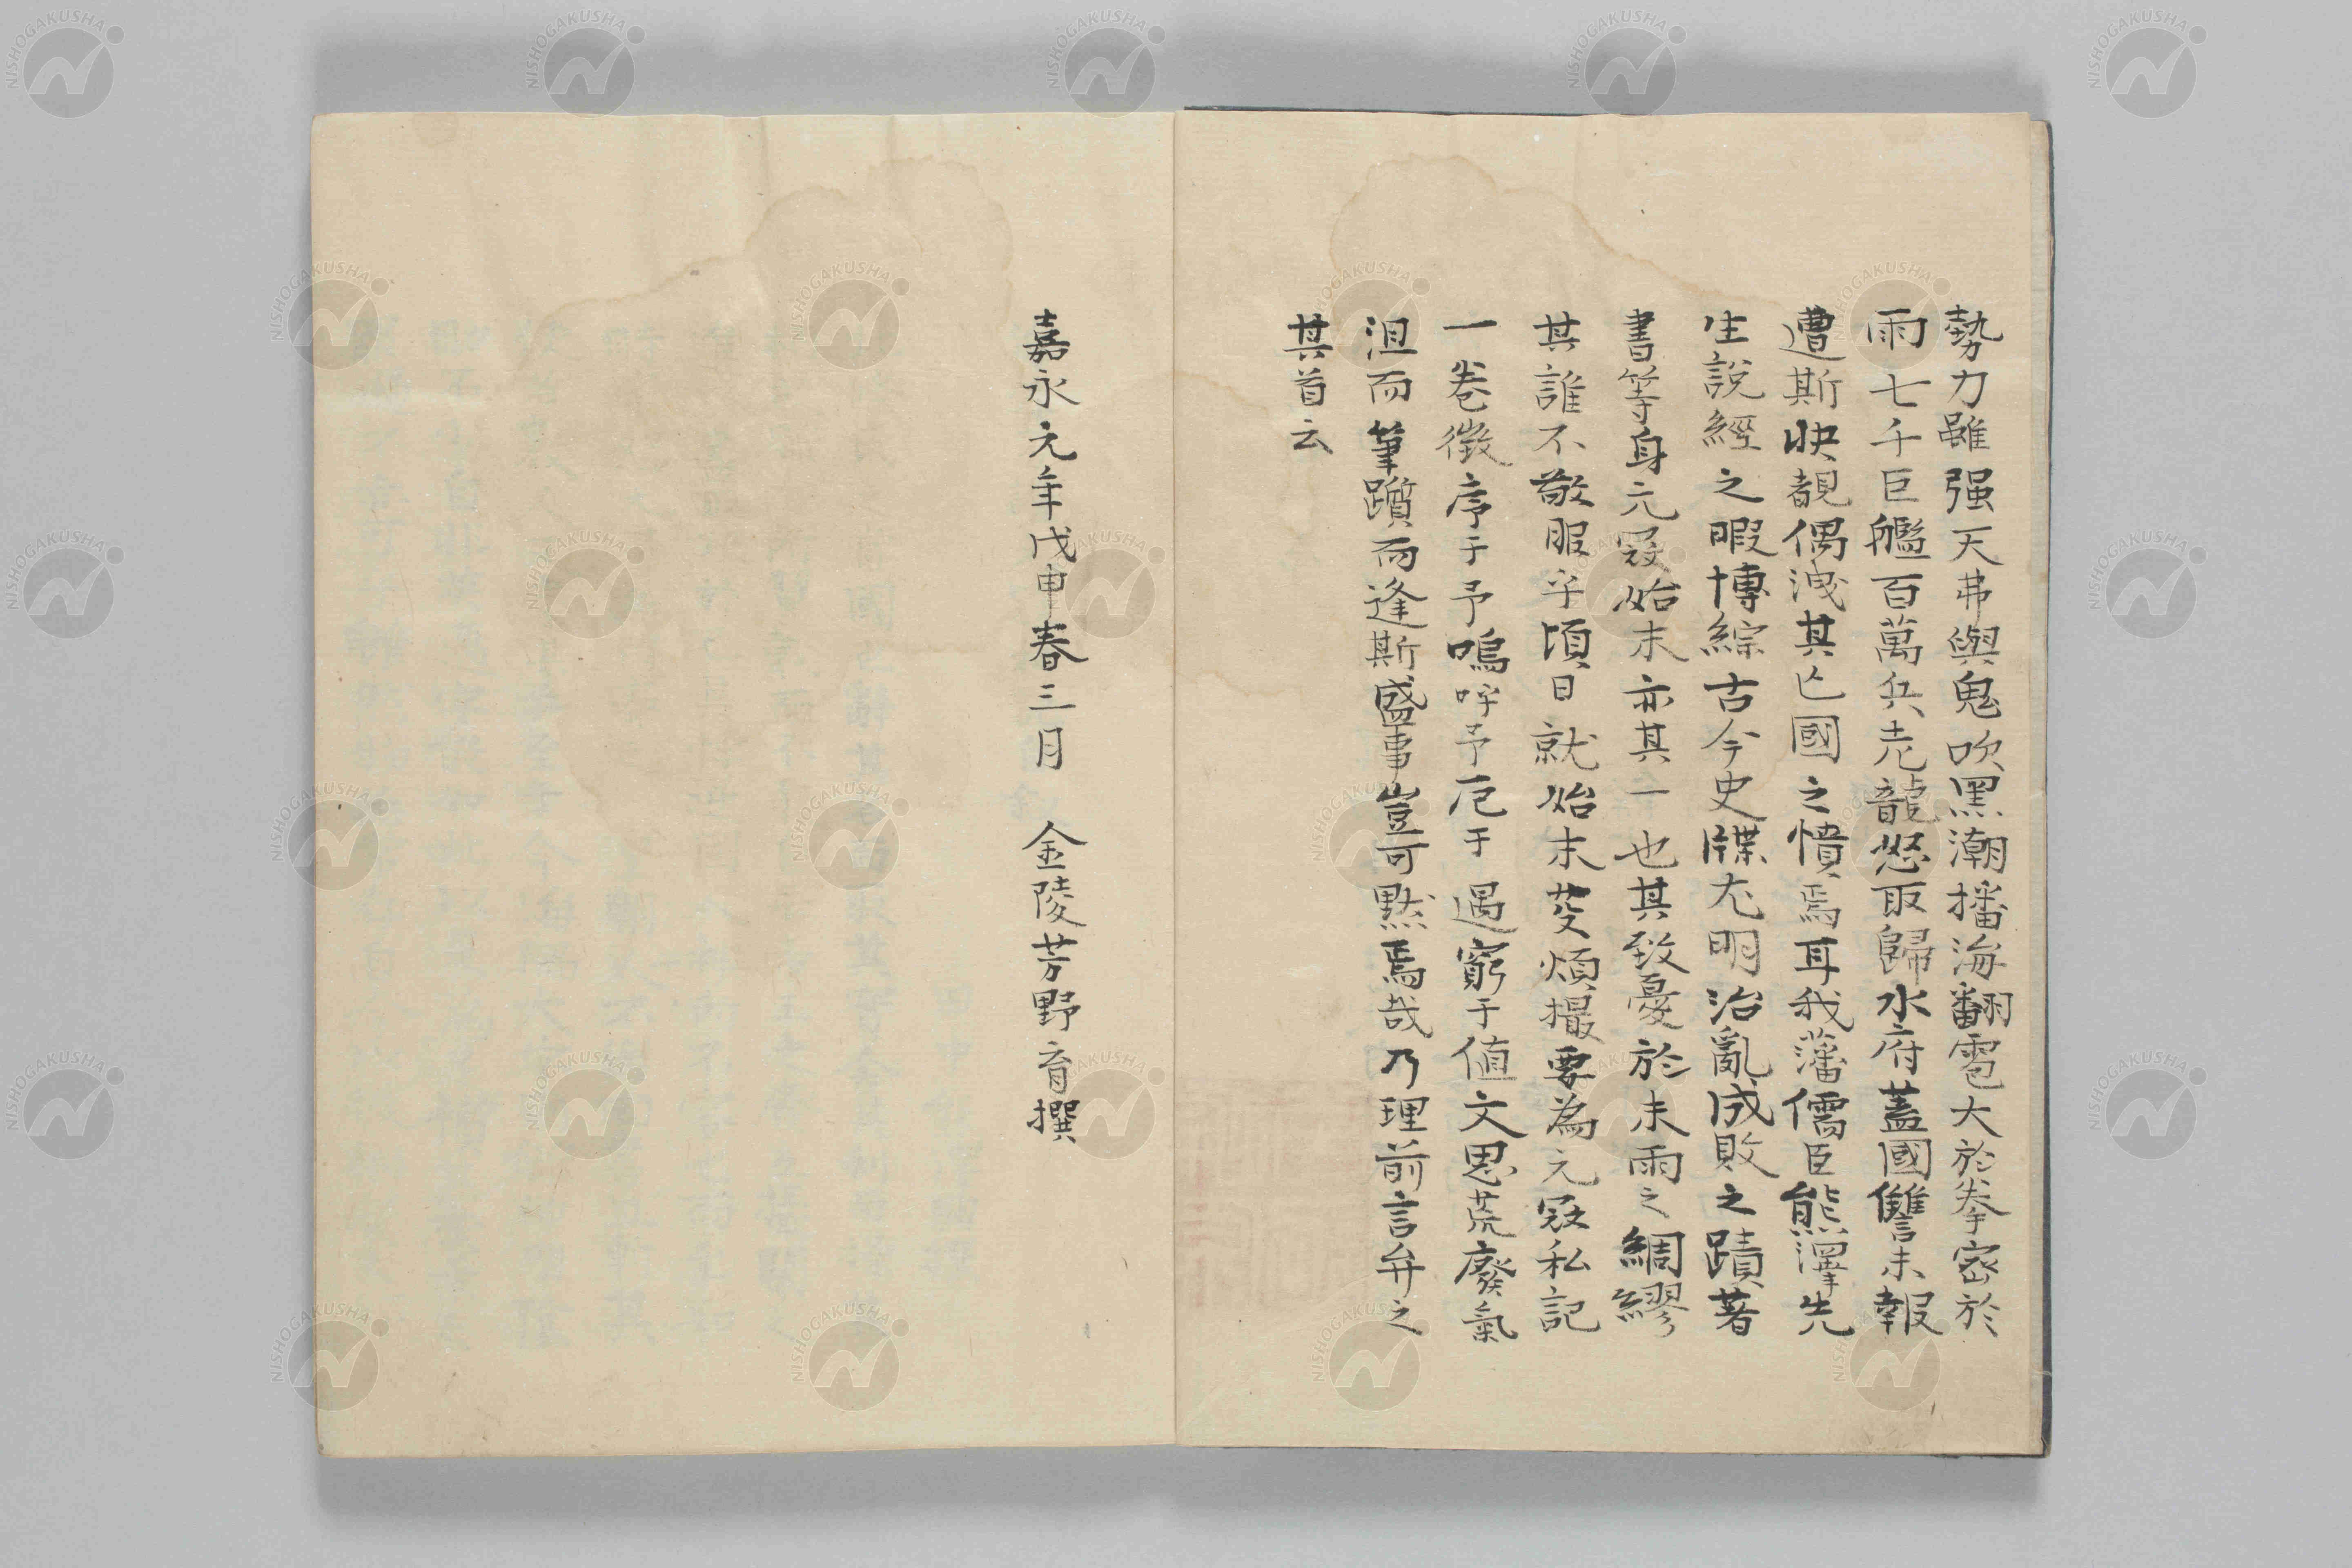 勢力雖强天弗與鬼吹黑潮播海翻雹大於拳密於
雨七千巨艦百萬兵尭龍怒取歸水府蓋國讐未報
遭斯快覩偶洩其亡國之憤焉耳我藩儒臣熊澤先
生說經之暇博綜古今史牒尤明治亂成敗之蹟著
書等身元寇始末亦其一也其致憂於未雨之綢繆
其誰不敬服乎頃日就始末芟煩撮要為元寇私記
一卷徴序于予嗚呼予厄于遇窮于値文思荒廢氣
沮而筆躓而逢斯盛事豈可黙焉哉乃理前言弁之
其首云
嘉永元年戊申春三月 金陵芳野育撰
NISHOGAKUSHA